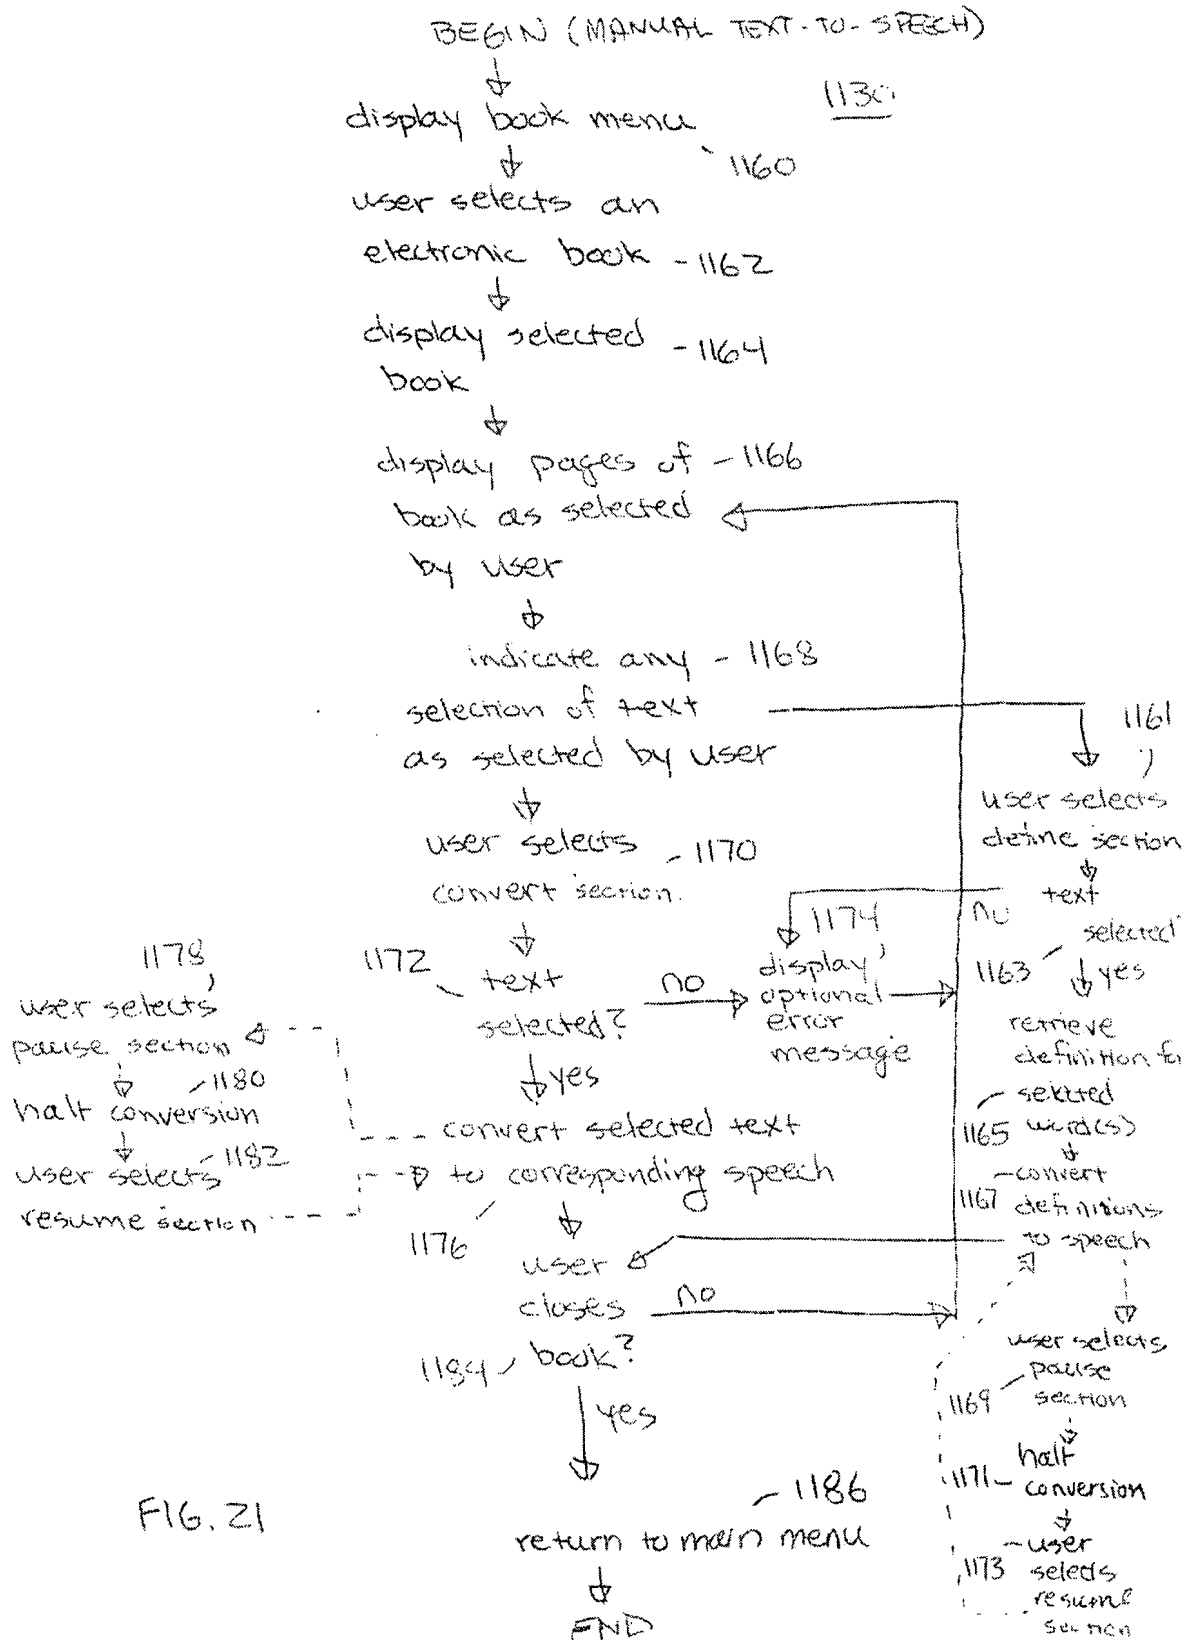 BEGIN (MANUAL TEXT-TO-SPEECH)
1130
display book menu
1160
user selects an
electronic book - 1162
display selected - 1164
book
display pages of - 1166
book as selected
by user
indicate any - 1168
selection of text
as selected by user
user selects - 1170
convert section.
1172
text
selected?
no
yes
1174
display
optional
error
message
convert selected text
to corresponding speech
1176
1178
user selects
pause section
1180
halt conversion
1182
user selects
resume section
user
closes
book?
1184
no
yes
1186
return to main menu
END
1161
user selects
define section
text
selected
no
1163
yes
retrieve
definition fo
selected
1165 word(s)
convert
1167 definitions
to speech
user selects
pause
1169 section
halt
1171 - conversion
user
1173 selects
resume
section
FIG. 21